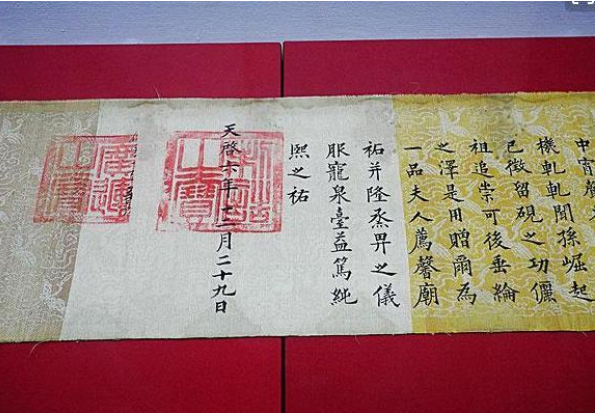 中宵
機軋軋聞孫崛起
已徵留硯之功儷
祖追崇可後垂綸
之澤是用贈爾為
一品夫人薦馨廟
祏并隆烝畀之儀
服寵泉臺益篤純
熙之祜
天啓六年十二月二十九日
制誥之寶
廣運之寶